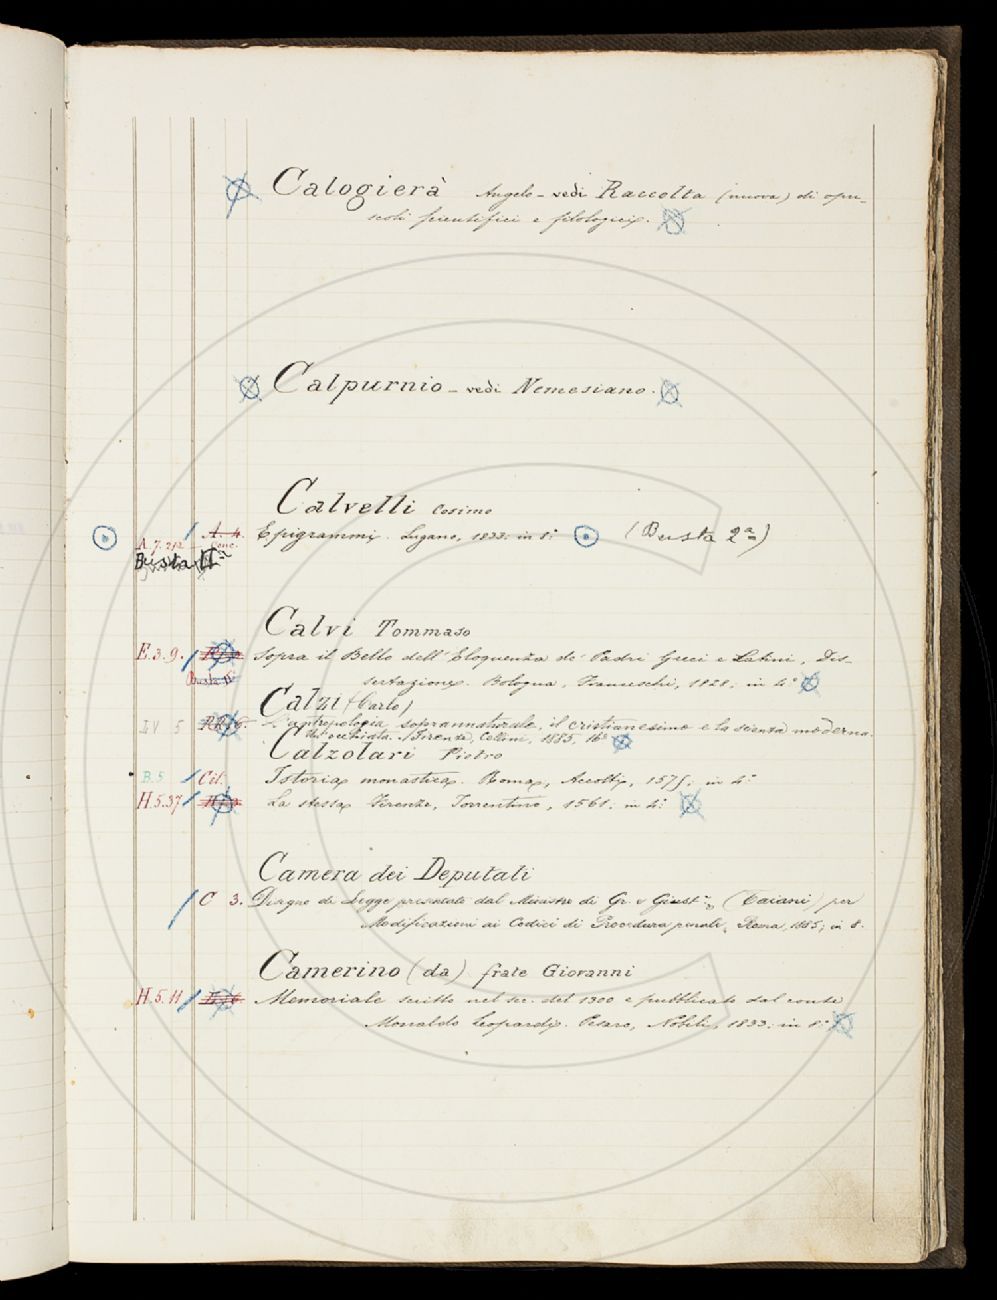 Calogierà Angelo - vedi Raccolta (nuova) di opu-
scoli scientifici e filologici.
Calpurnio - vedi Nemesiano.
Calvelli Cosimo
A. 4. Epigrammi. Lugano, 1833; in 8.° (Busta 2ª)
A. 7.
Busta IIª
Calvi Tommaso
E.3.9. Sopra il Bello dell'Eloquenza de' Padri Greci e Latini, Dis-
sertazione. Bologna, Franceschi, 1828; in 4.°
Calzi (Carlo)
IV 5 L'antropologia soprannaturale, il cristianesimo e la scienza moderna.
Un'occhiata. Firenze, Cellini, 1885, 16.°
Calzolari Pietro
B.5 Istoria monastica. Roma, Accolti, 1575; in 4.°
H.5.37 La stessa Firenze, Torrentino, 1561; in 4.°
Camera dei Deputati
C 3. Disegno di Legge presentato dal Ministro di Gr. e Giust.ª (Taiani) per
Modificazioni ai Codici di Procedura penale, Roma, 1885; in 8.
Camerino (da) frate Giovanni
H.5.11 Memoriale scritto nel sec. del 1300 e pubblicato dal conte
Monaldo Leopardi. Pesaro, Nobili, 1833; in 8.°